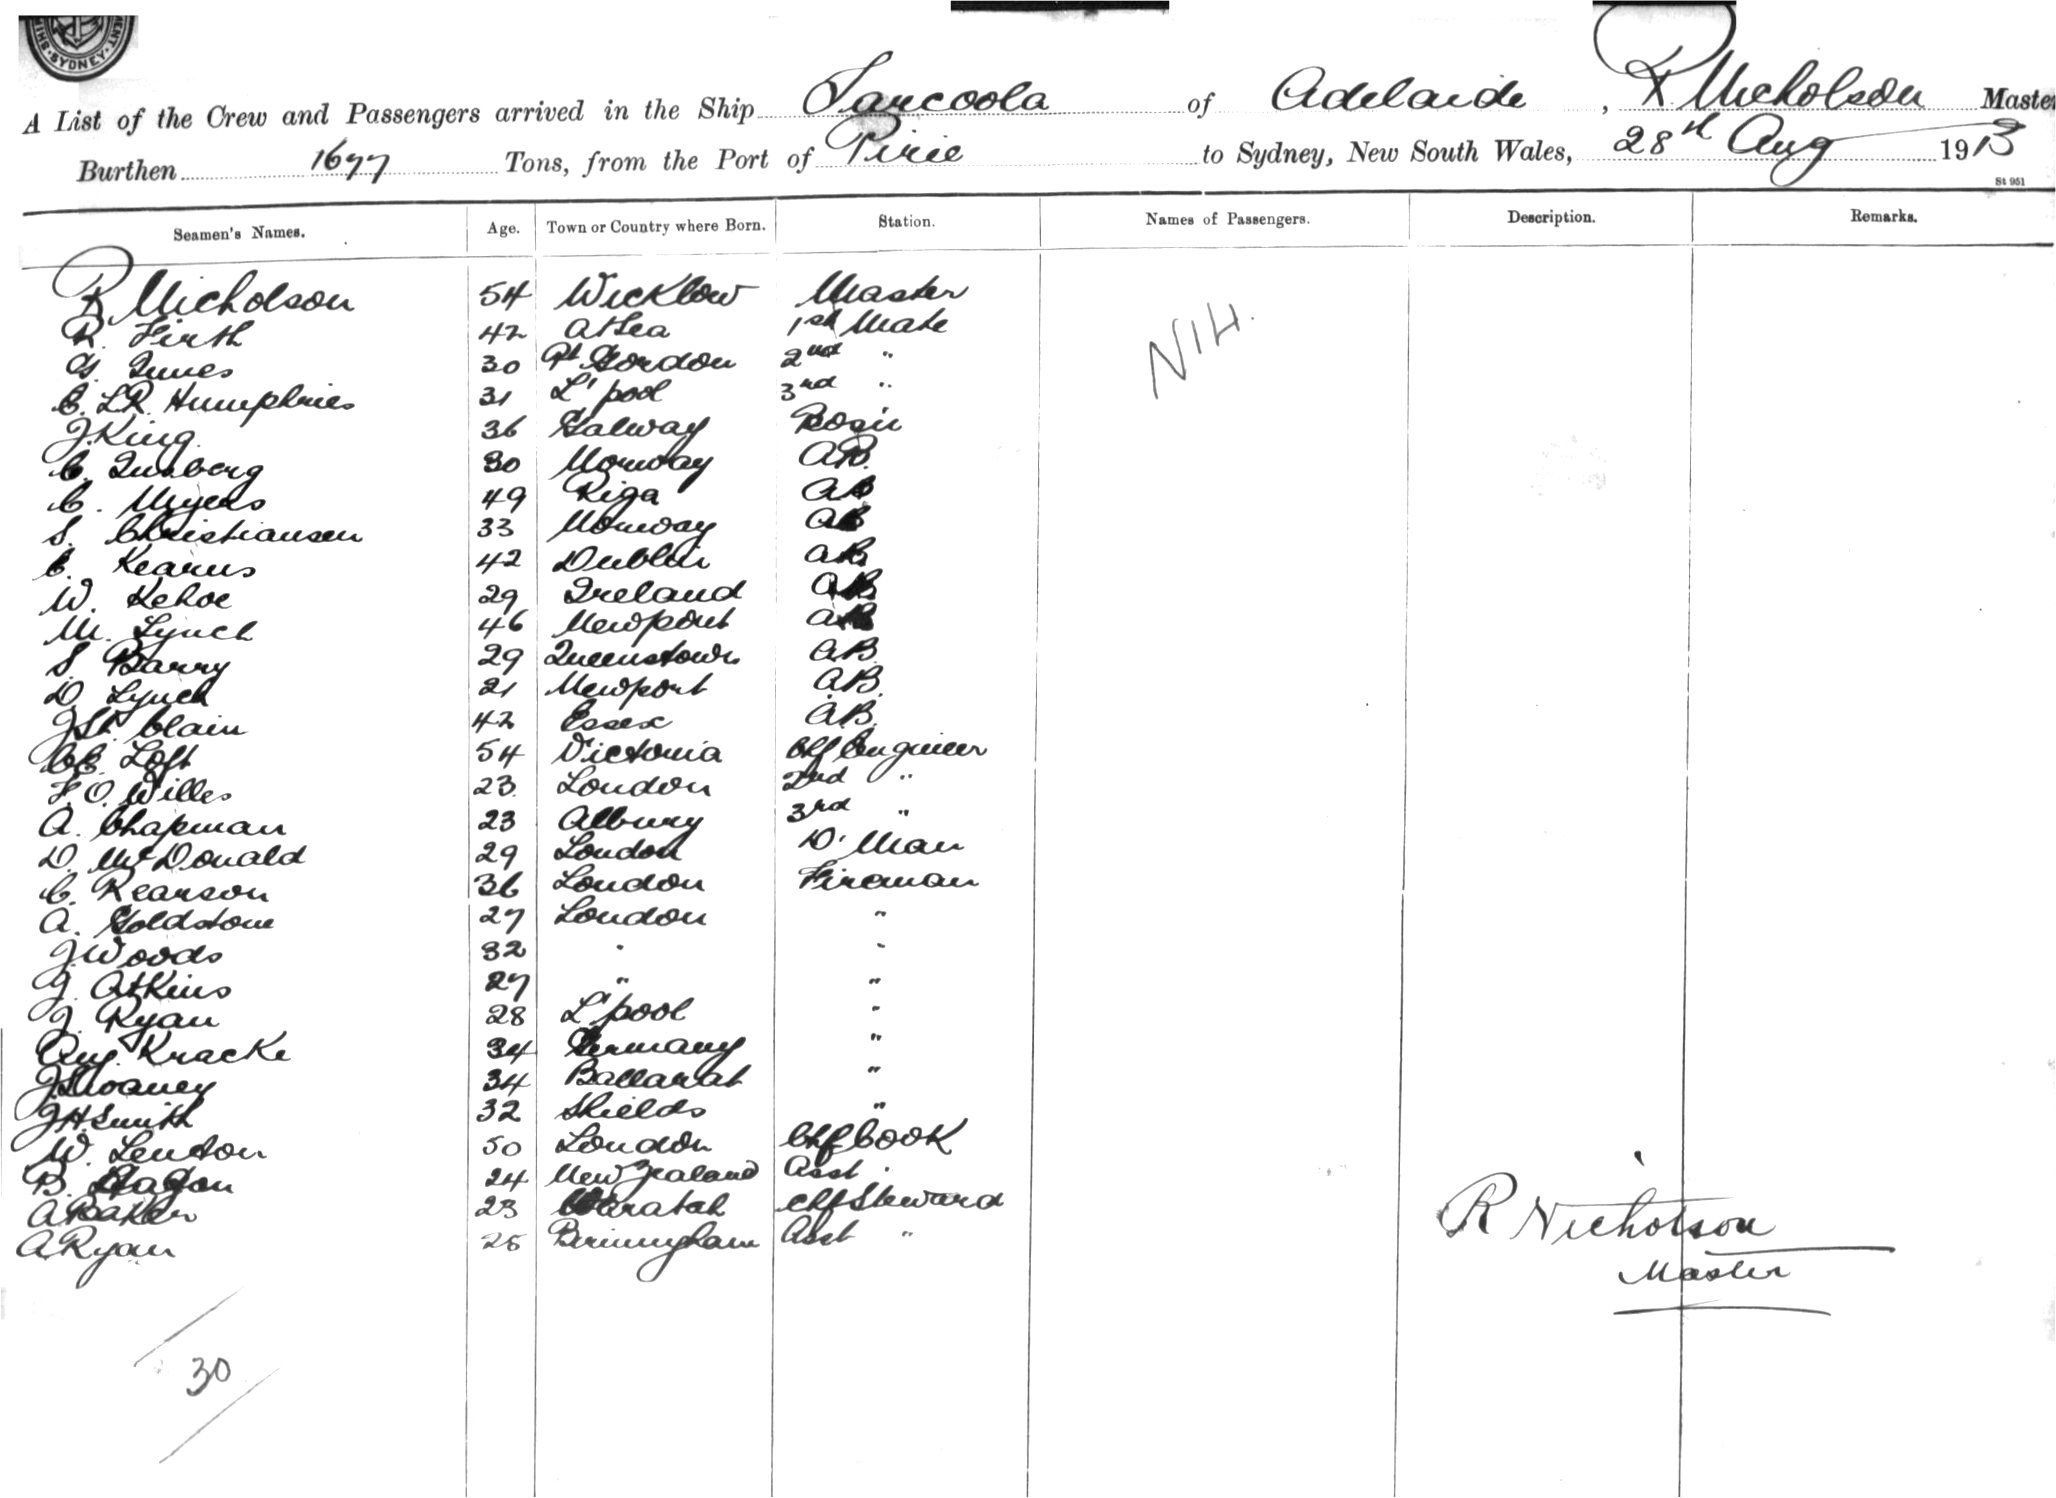 SYDNEY
A List of the Crew and Passengers arrived in the Ship Tarcoola of Adelaide, R Nicholson Master
Burthen 1677 Tons, from the Port of Pirie to Sydney, New South Wales, 28th Aug 1913
St 951
Seamen's Names. Age. Town or Country where Born. Station. Names of Passengers. Description. Remarks.
R Nicholson 54 Wicklow Master
R. Firth 42 At Sea 1st Mate
G. Innes 30 Pt Gordon 2nd "
C. L.R. Humphries 31 L'pool 3rd "
NIL.
J. King 36 Galway Bosn
C. Insberg 30 Norway AB.
C. Myers 49 Riga AB
S. Christiansen 33 Norway AB
C. Kearns 42 Dublin AB
W. Kehoe 29 Ireland AB
M. Lynch 46 Newport AB
S. Barry 29 Queenstown AB
D. Lynch 21 Newport AB.
J. St. Clair 42 Essex AB.
C.C. Loft 54 Victoria Chf Engineer
F. O. Willes 23 London 2nd "
A. Chapman 23 Albury 3rd "
D. McDonald 29 London D'Man
C. Pearson 36 London Fireman
A. Goldstone 27 London "
J. Woods 32 " "
J. Atkins 27 " "
J. Ryan 28 L'pool "
Aug. Kracke 34 Germany "
J. 34 Ballarat "
J H Smith 32 Shields "
W. Lenton 50 London Chf Cook
B. 24 New Zealand Asst "
A Baker 23 Waratah Chf Steward
A Ryan 25 Birmingham Asst "
R Nicholson
Master
30